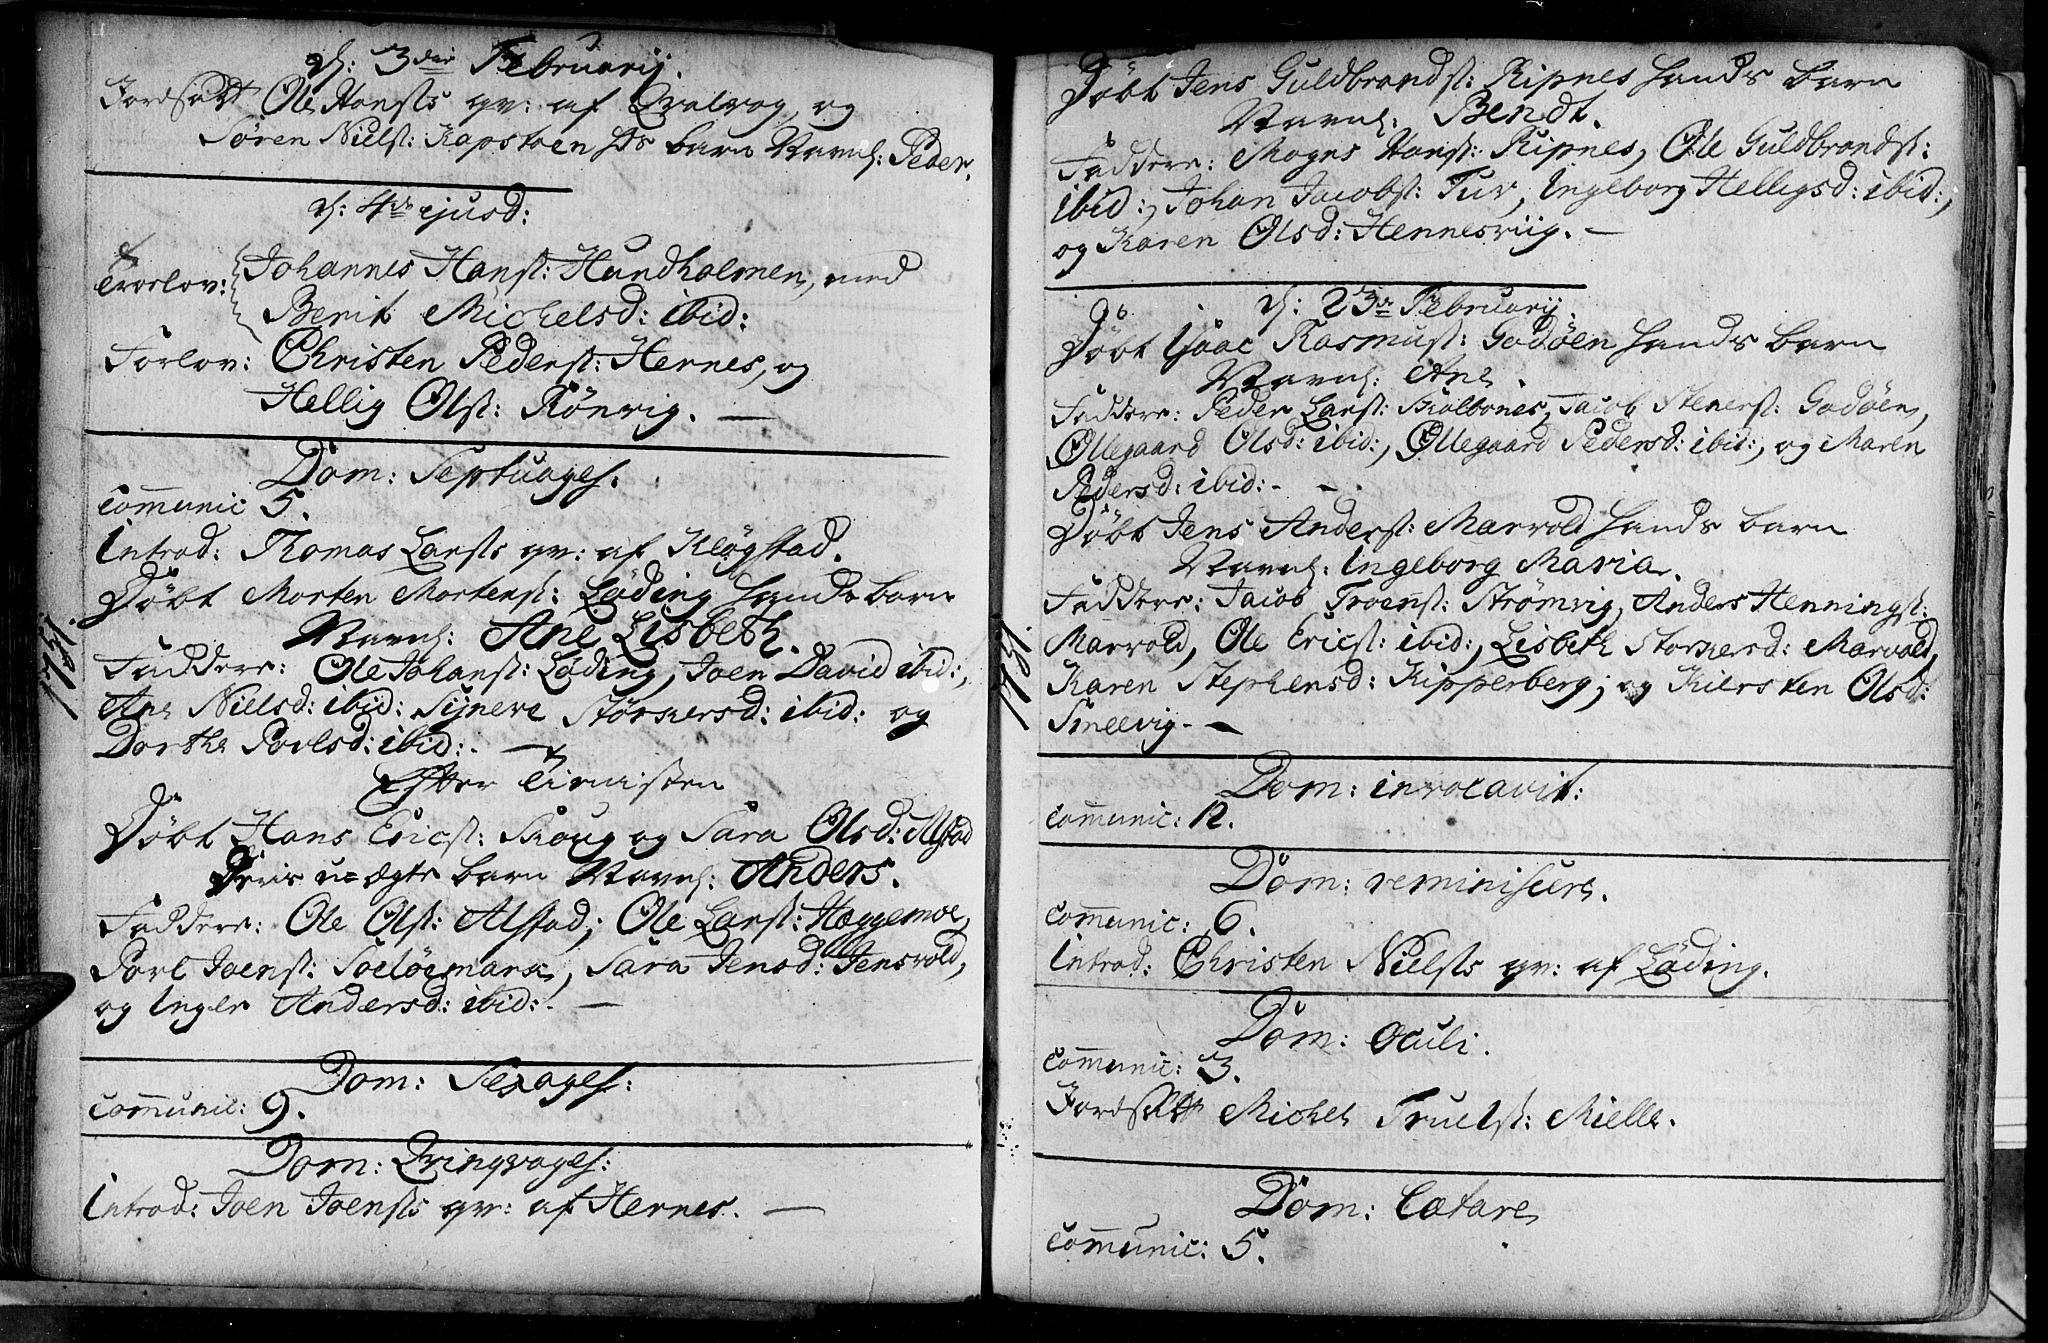 d: 3die Februarij.
Jordsatt Ole Hansts qv: af Qvalvog, og
Sören Nielst: Kapstoen hs barn Navnl: Peder.
d: 4de ejusd:
Trorlov: Johannes Hanst: Hundholmen, med
Berit Michelsd: ibid:
Forlov: Christen Pederst: Hernes, og
Hellig Olst: Rönvig. —
Dom: Septuages.
Communic 5.
Introd: Thomas Larsts qv: af Kløgstad.
Döbt Morten Mortenst: Löding hands barn
Navnl: Ane Lisbeth.
Faddere: Ole Johanst: Løding, Joen David ibid:,
Ane Nielsd: ibid: Sijnere Størkersd: ibid: og
Dorthe Povlsd: ibid: —
Efter Circuisten
Döbt Hans Ericst: Skoug og Sara Olsd: Alstad
Deris u=ægte barn Navnl: Anders.
Faddere: Ole Olst: Alstad; Ole Larst: Hæggemoe,
Povl Joenst: Soeløesmark, Sara Jensd: Jensvold,
og Inger Andersd: ibid: —
Dom: Sexages:
Communic: 9.
Dom: Qvinqvages:
Introd: Joen Joensts qv: af Hernes. —
1731.
Döbt Jens Guldbrandst: Ripnes hands barn
Navnl: Bendt.
Faddere: Mogns Hanst: Ripnes, Ole Guldbrandst:
ibid:, Johan Jacobst: Tuv, Ingeborg Helligsd: ibid:,
og Karen Olsd: Hennesviig. —
d: 23de Februarij.
Döbt Isaac Rasmust: Godöen hands barn
Navnl: Ane.
Faddere: Peder Larst: Skolbones, Jacob Stenerst: Godöen,
Ollegaard Olsd: ibid:, Ollegaard Pedersd: ibid:, og Maren
Pedersd: ibid: -
Döbt Jens Anderst: Marvold hands barn
Navnl: Ingeborg Maria.
Faddere: Jacob Troenst: Strömvig, Anders Henningst:
Marvold, Ole Ericst: ibid:, Lisbeth Storkersd: Marvold,
Karen Stephensd: Kipperberg; og Kiersten Olsd:
Sneevig. —
1731.
Dom: invocavit:
Communic: 12.
Dom: reminiscere.
Communic: 6.
Introd: Christen Nielsts qv: af Löding.
Dom: Oculi.
Communic: 3.
Jordsatt Michel Truelst: Mielle.
Dom: Lætare
Communic: 5.